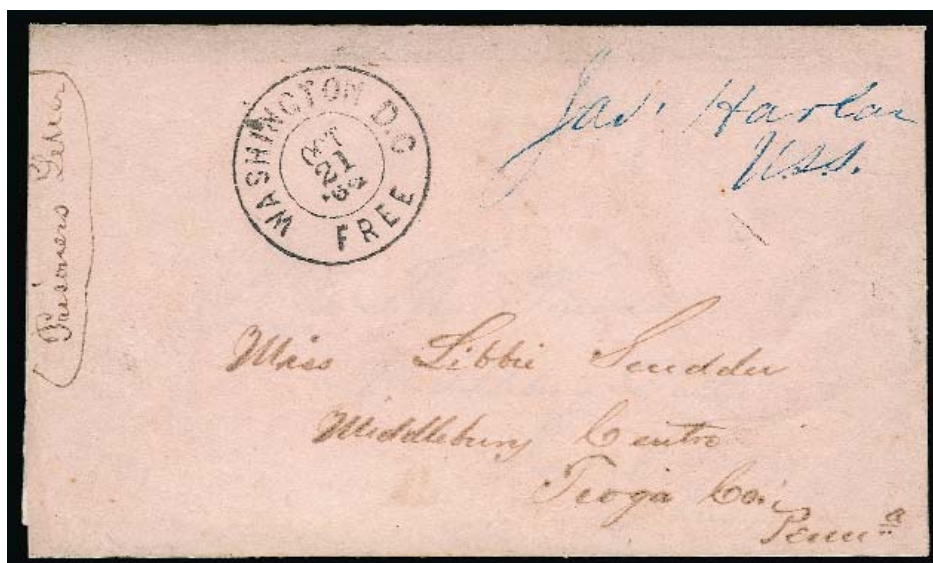 Prisoners Letter
WASHINGTON D.C
OCT
21
FREE
Jas. Harlan
USS.
Miss Libbie Scudder
Middlebury Centre
Tioga Co.
Penn a